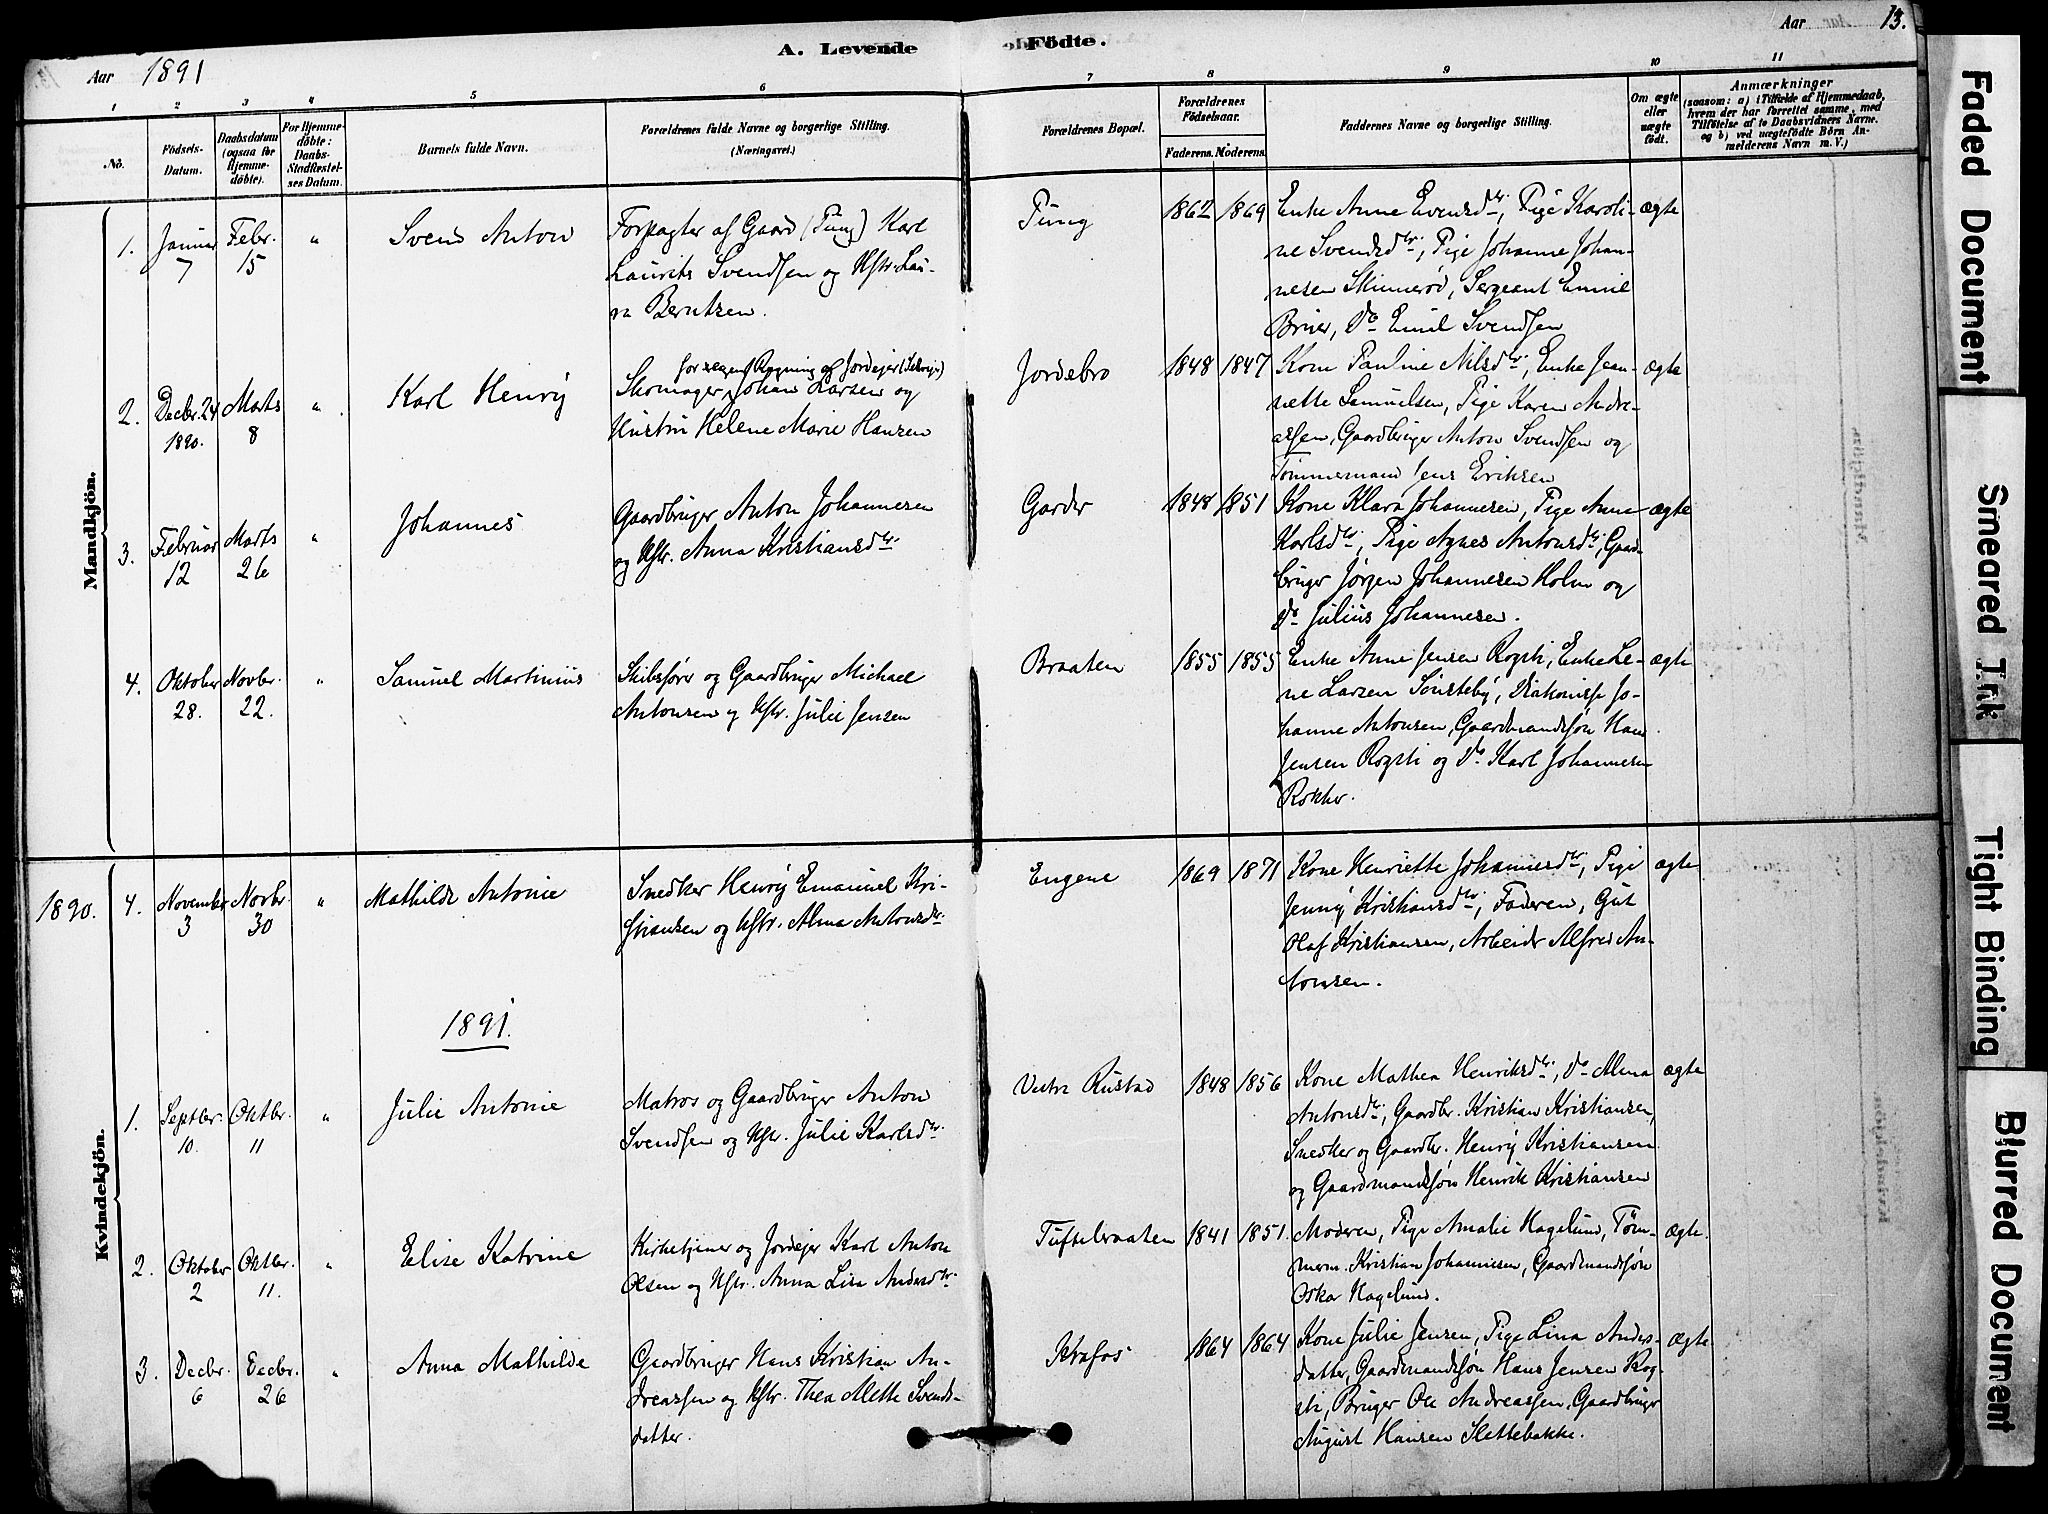 A. Levende Födte.
Aar 1891
Aar 13.
1 2 3 4 5 6 7 8 9 10 11
No.
Födsels-Datum.
Daabsdatum (ogsaa for Hjemme-döbte).
For Hjemme-döbte: Daabs-Stadfæstel-ses Datum.
Barnets fulde Navn.
Forældrenes fulde Navne og borgerlige Stilling. (Næringsvei.)
Forældrenes Bopæl.
Forældrenes Födselsaar.
Faderens. Moderens.
Faddernes Navne og borgerlige Stilling.
Om ægte eller uægte födt.
Anmærkninger
(saasom: a) i Tilfælde af Hjemmedaab,
hvem der har forrettet samme, med
Tilföielse af to Daabsvidners Navne.
og b) ved uægtefödte Börn An-
melderens Navn m. V.)
Mandkjön.
1. Januar 7 Febr. 15 " Svend Anton
Forpagter af Gaard (Pung) Karl
Laurits Svendsen og Hstr. Lau-
ra Berntsen.
Pung 1862 1869
Enke Anne Evensdtr, Pige Karoli-
ne Svendsdtr, Pige Johanne Johan-
nesen Skinnerød, Sergeant Emil
Brüer, Do Emil Svendsen
ægte
2. Decbr. 24 1890. Marts 8 " Karl Henry
for egen Regning og Jordejer (Selvejer)
Skomager Johan Larsen og
Hustru Helene Marie Hansen
Jordebro 1848 1847
Kone Pauline Nilsdtr, Enke Jean-
nette Samuelsen, Pige Karen Andre-
assen, Gaardbruger Anton Svendsen og
Tømmermand Jens Eriksen
ægte
3. Februar 12 Marts 26 " Johannes
Gaardbruger Anton Johannesen
og Hstr. Anna Kristiansdtr.
Garder 1848 1851
Kone Klara Johannesen, Pige Anne
Karlsdtr, Pige Agnes Antonsdtr, Gaard-
bruger Jørgen Johannesen Holm og
Do Julius Johannesen.
ægte
4. Oktober 28. Novbr. 22. " Samuel Martinius
Skibsfører og Gaardbruger Michael
Antonsen og Hstr. Julie Jensen
Braaten 1855 1855
Enke Anne Jensen Rogsti, Enke Le-
ne Larsen Sønsteby, Diakonisse Jo-
hanne Antonsen, Gaardmandsøn Hans
Jensen Rogsti og Do Karl Johannesen
Rokke.
ægte
Kvindekjön.
1890. 4. November 3 Novbr. 30 " Mathilde Antonie
Snedker Henry Emanuel Kri-
stiansen og Hstr. Alma Antonsdtr.
Engene 1869 1871
Kone Henriette Johannesdtr, Pige
Jenny Kristiansdtr, Faderen, Gut
Olaf Kristiansen, Arbeider Alfred An-
tonsen.
ægte
1891.
1. Septbr. 10. Oktbr. 11 " Julie Antonie
Matros og Gaardbruger Anton
Svendsen og Hstr. Julie Karlsdtr.
Vestre Rustad 1848 1856
Kone Mathea Henriksdtr, Do Alma
Antonsdtr, Gaardbr. Kristian Kristiansen,
Snedker og Gaardbr. Henry Kristiansen
og Gaardmandsøn Henrik Kristiansen
ægte
2. Oktober 2 Oktbr. 11. " Elise Katrine
Kirketjener og Jordejer Karl Anton
Olsen og Hstr. Anna Lisa Andersdtr.
Tuftebraaten 1841 1851.
Moderen, Pige Amalie Hagelund, Tøm-
merm. Kristian Johannesen, Gaardmandsøn
Oskar Hagelund.
ægte.
3. Decbr. 6 Decbr. 26 " Anna Mathilde
Gaardbruger Hans Kristian An-
dreassen og Hstr. Thea Mette Svends-
datter.
Krafos 1864 1864
Kone Julie Jensen, Pige Lina Anders-
datter, Gaardmandsøn Hans Jensen Rog-
sti, Bruger Ole Andreassen, Gaardbruger
August Hansen Slettebakke.
ægte
Faded Document
Smeared Ink
Tight Binding
Blurred Document